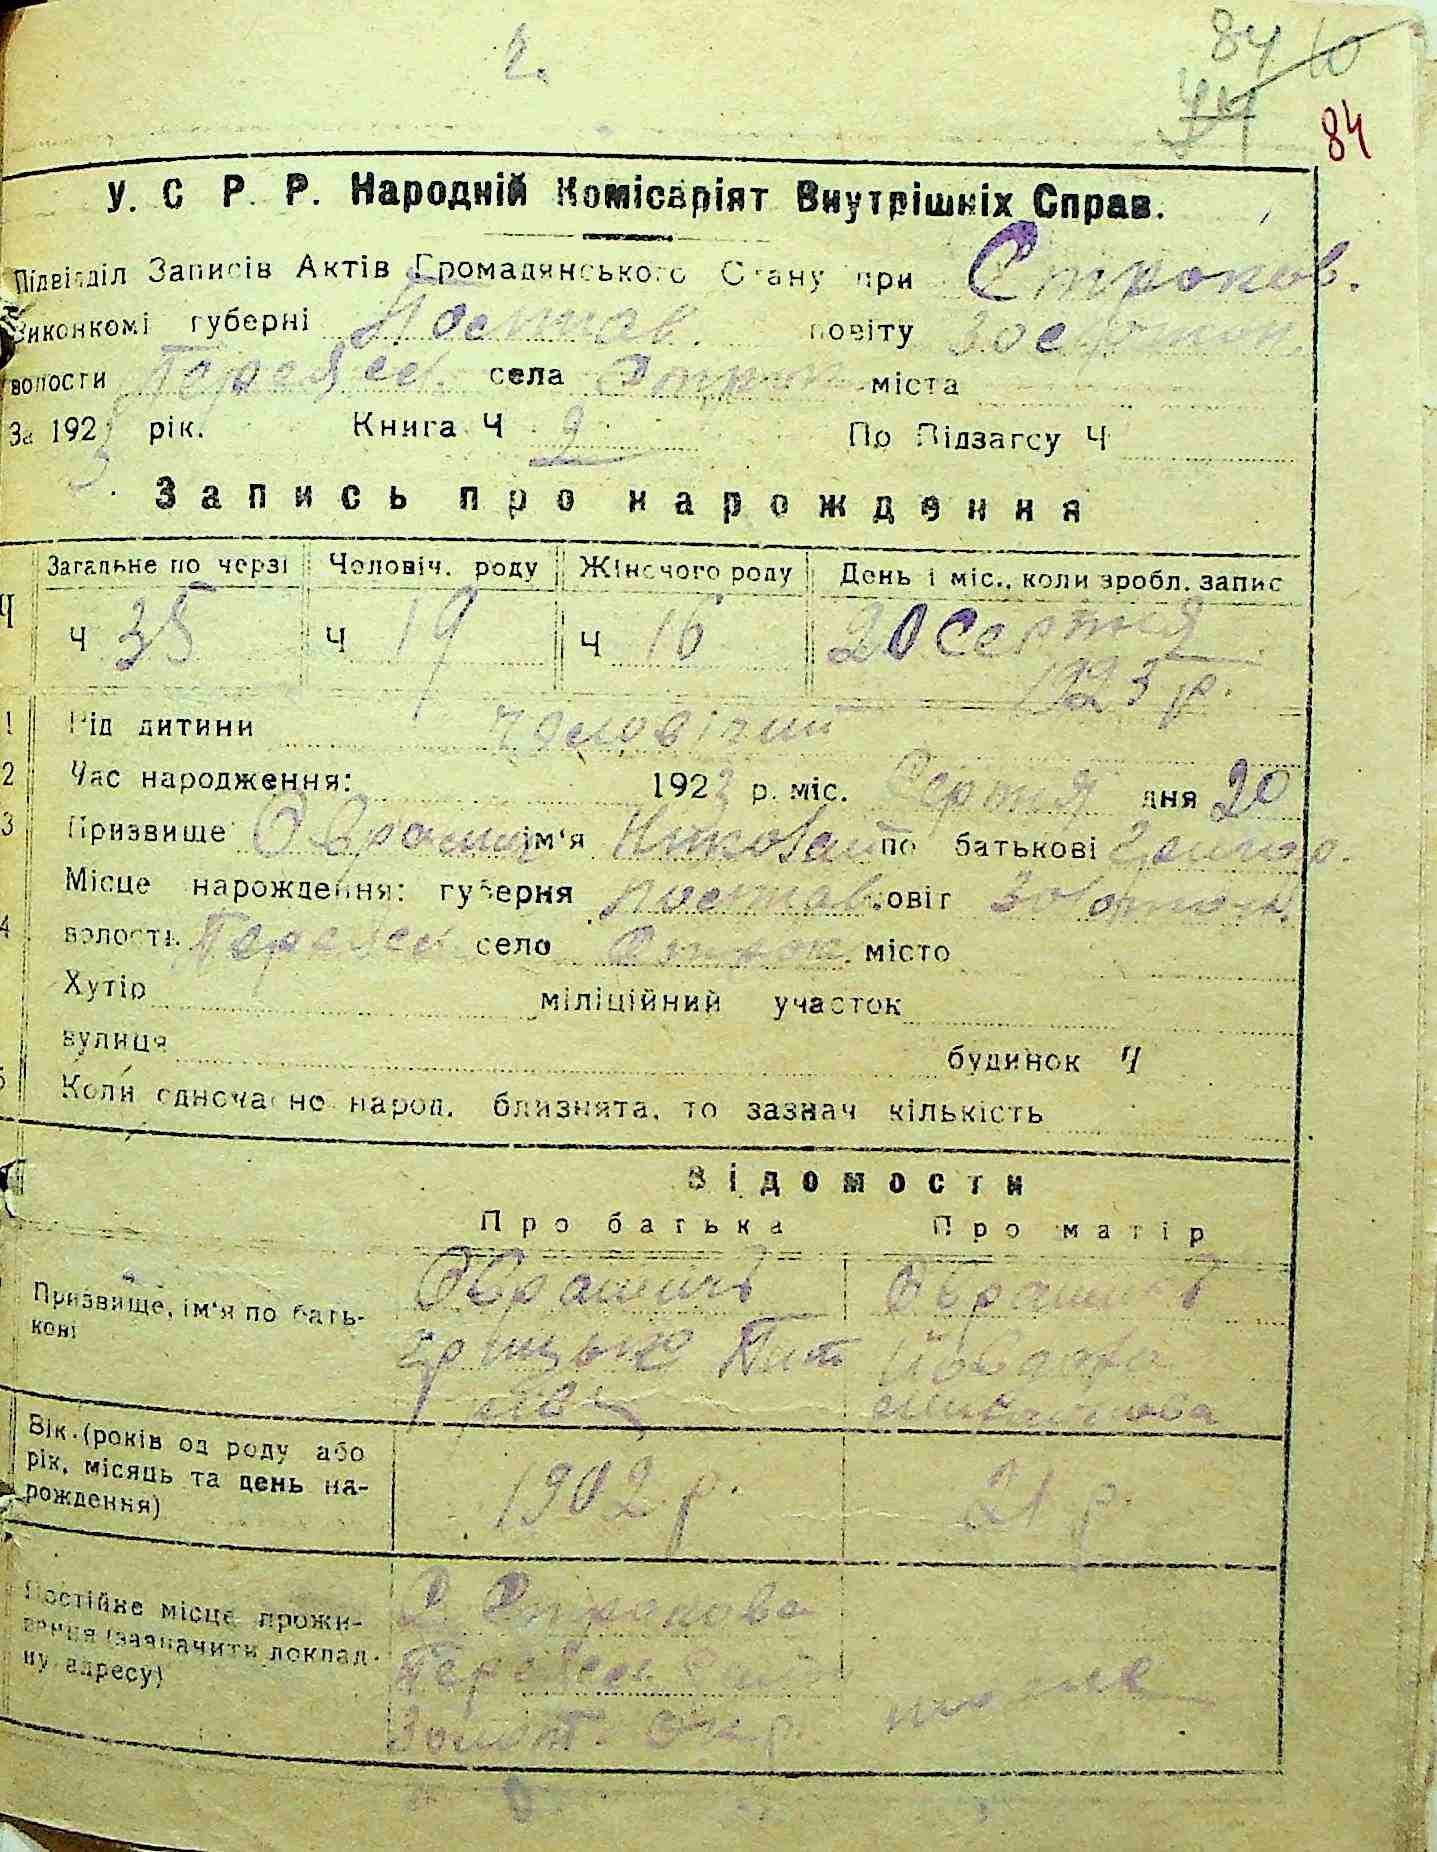 2.
84 10
44
84
У. С. Р. Р. Народній Комісаріят Внутрішніх Справ.
Підвідділ Записів Актів Громадянського Стану при Строков.
Виконкомі губерні Полтав. повіту Золотон.
волости Переяс. села Строк. міста
За 1923 рік. Книга Ч 2 По Підзагсу Ч
Запись про нарождення
Загальне по черзі Чоловіч. роду Жіночого роду День і міс., коли зробл. запис
Ч Ч 35 Ч 19 Ч 16 20 Серпня
1923 р.
1 Рід дитини чоловічий
2 Час народження: 1923 р. міс. Серпня дня 20
3 Призвище ім'я Николай по батькові Григор.
Місце нарождення: губерня Полтав. повіт Золотон.
4 волость Переяс. село Строк. місто
Хутір міліційний участок
вулиця будинок Ч
5 Коли одночасно народ. близнята, то зазнач кількість
Відомости
Про батька Про матір
Призвище, ім'я по бать-
кові
Грицько
Вік (років од роду або
рік, місяць та день на-
рождення)
1902 р. 21 р.
Постійне місце прожи-
вання (зазначити доклад-
ну адресу)
С. Строкова
Золот. окр. тоже